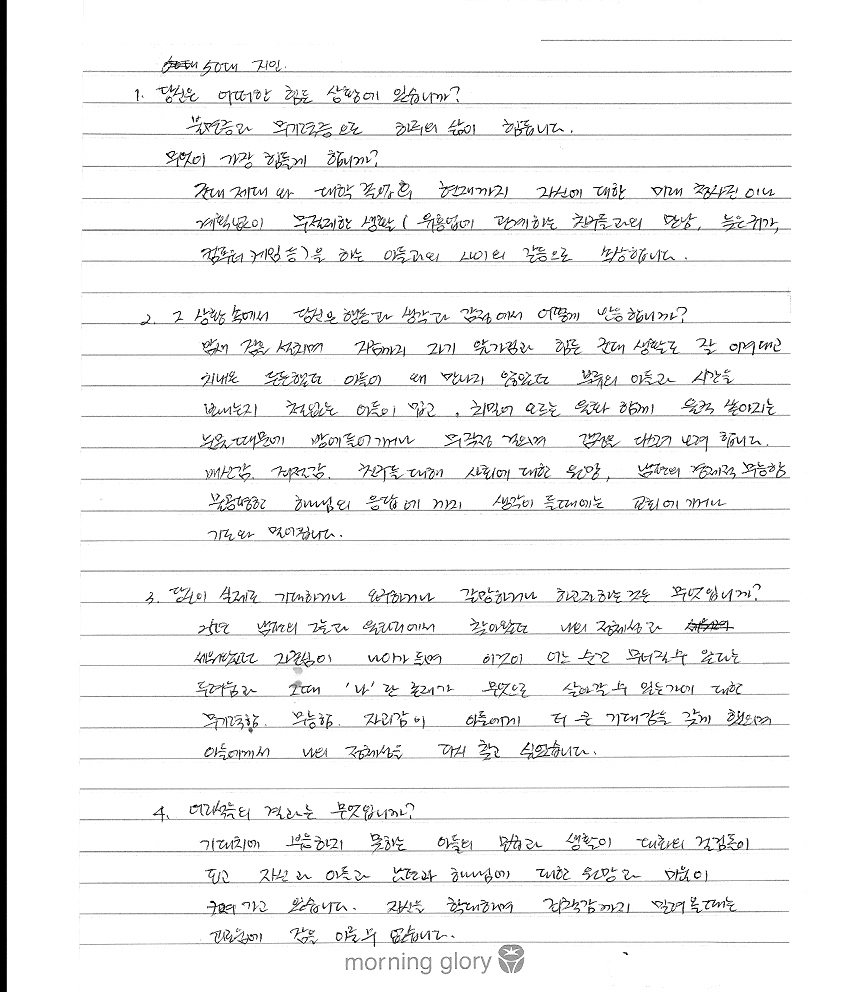 50대 지인.
1. 당신은 어떠한 힘든 상황에 있습니까?
불면증과 무기력증으로 하루의 삶이 힘듭니다.
무엇이 가장 힘들게 합니까?
군대 제대와 대학 졸업후 현재까지 자신에 대한 미래 청사진이나
계획없이 무절제한 생활(유흥업에 관계하는 친구들과의 만남, 늦은귀가,
컴퓨터 게임 등)을 하는 아들과의 사이의 갈등으로 속상합니다.
2. 그 상황 속에서 당신은 행동과 생각과 감정에서 어떻게 반응합니까?
밤새 잠을 설치며 지금까지 자기 앞가림과 힘든 군대 생활도 잘 이겨내고
지내온 든든했던 아들이 왜 만나지 않았던 부류의 아들과 시간을
보내는지 철없는 아들이 밉고, 치밀어 오르는 울화와 함께 울컥 쏟아지는
눈물때문에 밤에 들어가거나 무작정 걸으며 감정을 다스려 합니다.
배신감, 좌절감, 친구들 대해 사회에 대한 원망, 남편의 경제적 무능함
불공평한 하나님의 응답에 까지 생각이 들때에는 교회에 가거나
기도와 멀어집니다.
3. 당신이 실제로 기대하거나 요구하거나 갈망하거나 하고자하는것은 무엇입니까?
25년 남편의 그늘과 울타리에서 찾아왔던 나의 정체성과
세워왔던 자존심이 나이가 들며 이것이 어느 순간 무너질수 있다는
두려움과 그때 '나'란 존재가 무엇으로 살아갈 수 있는가에 대한
무기력함, 무능함, 자괴감이 아들에게 더 큰 기대감을 갖게 했으며
아들에게서 나의 정체성을 다시 찾고 싶었습니다.
4. 어리석음의 결과는 무엇입니까?
기대치에 부응하지 못하는 아들의 모습과 생활이 대화의 걸림돌이
되고 자신과 아들과 남편과 하나님에 대한 원망과 미움이
가고 있습니다. 자신을 학대하며 죄책감까지 밀려올때는
괴로움에 잠을 이룰 수 없습니다.
morning glory